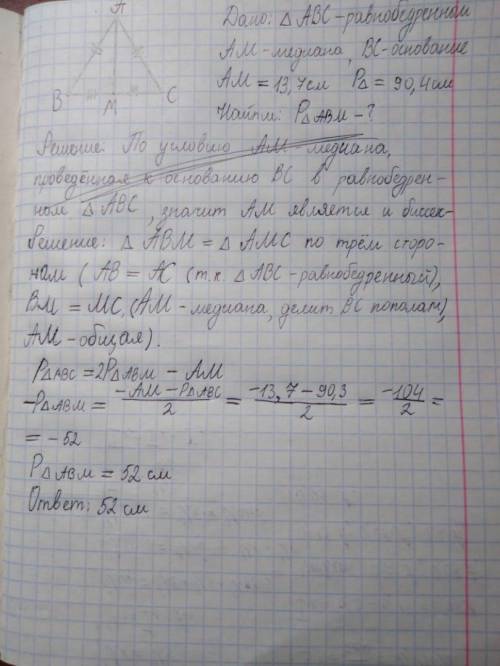 A
B
M
C
Дано: △ ABC - равнобедренный
AM - медиана, BC - основание
AM = 13,7 см P△ = 90,4 см
Найти: P△ABM - ?
Решение: По условию AM - медиана,
проведённая к основанию BC в равнобедрен-
ном △ ABC, значит AM является и биссек-
Решение: △ ABM = △ AMC по трём сторо-
нам (AB = AC (т.к. △ ABC - равнобедренный),
BM = MC, (AM - медиана, делит BC пополам),
AM - общая).
P△ABC = 2P△ABM - AM
-P△ABM = -AM - P△ABC / 2 = -13,7 - 90,3 / 2 = -104 / 2 =
= -52
P△ABM = 52 см
Ответ: 52 см